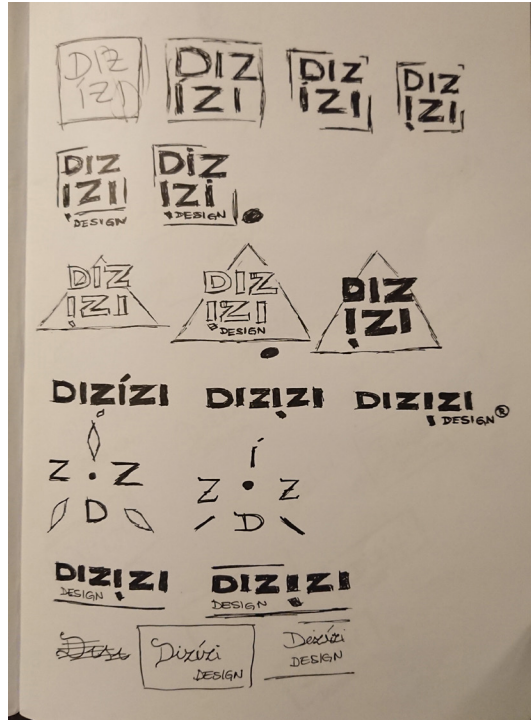 DIZ
ÍZI
DIZ
ÍZI
DIZ
ÍZI
DIZ
IZI
DIZ
IZI
DESIGN
DİZ
IZİ
DESIGN
DÍZ
IZI
DIZ
IZI
DESIGN
DIZ
IZI
DIZÍZI DIZIZI DIZIZI
DESIGN®
Í
Z Z Z Z
D D
DIZIZI DIZIZI
DESIGN DESIGN
Dizízi
DESIGN
Dizízi
DESIGN